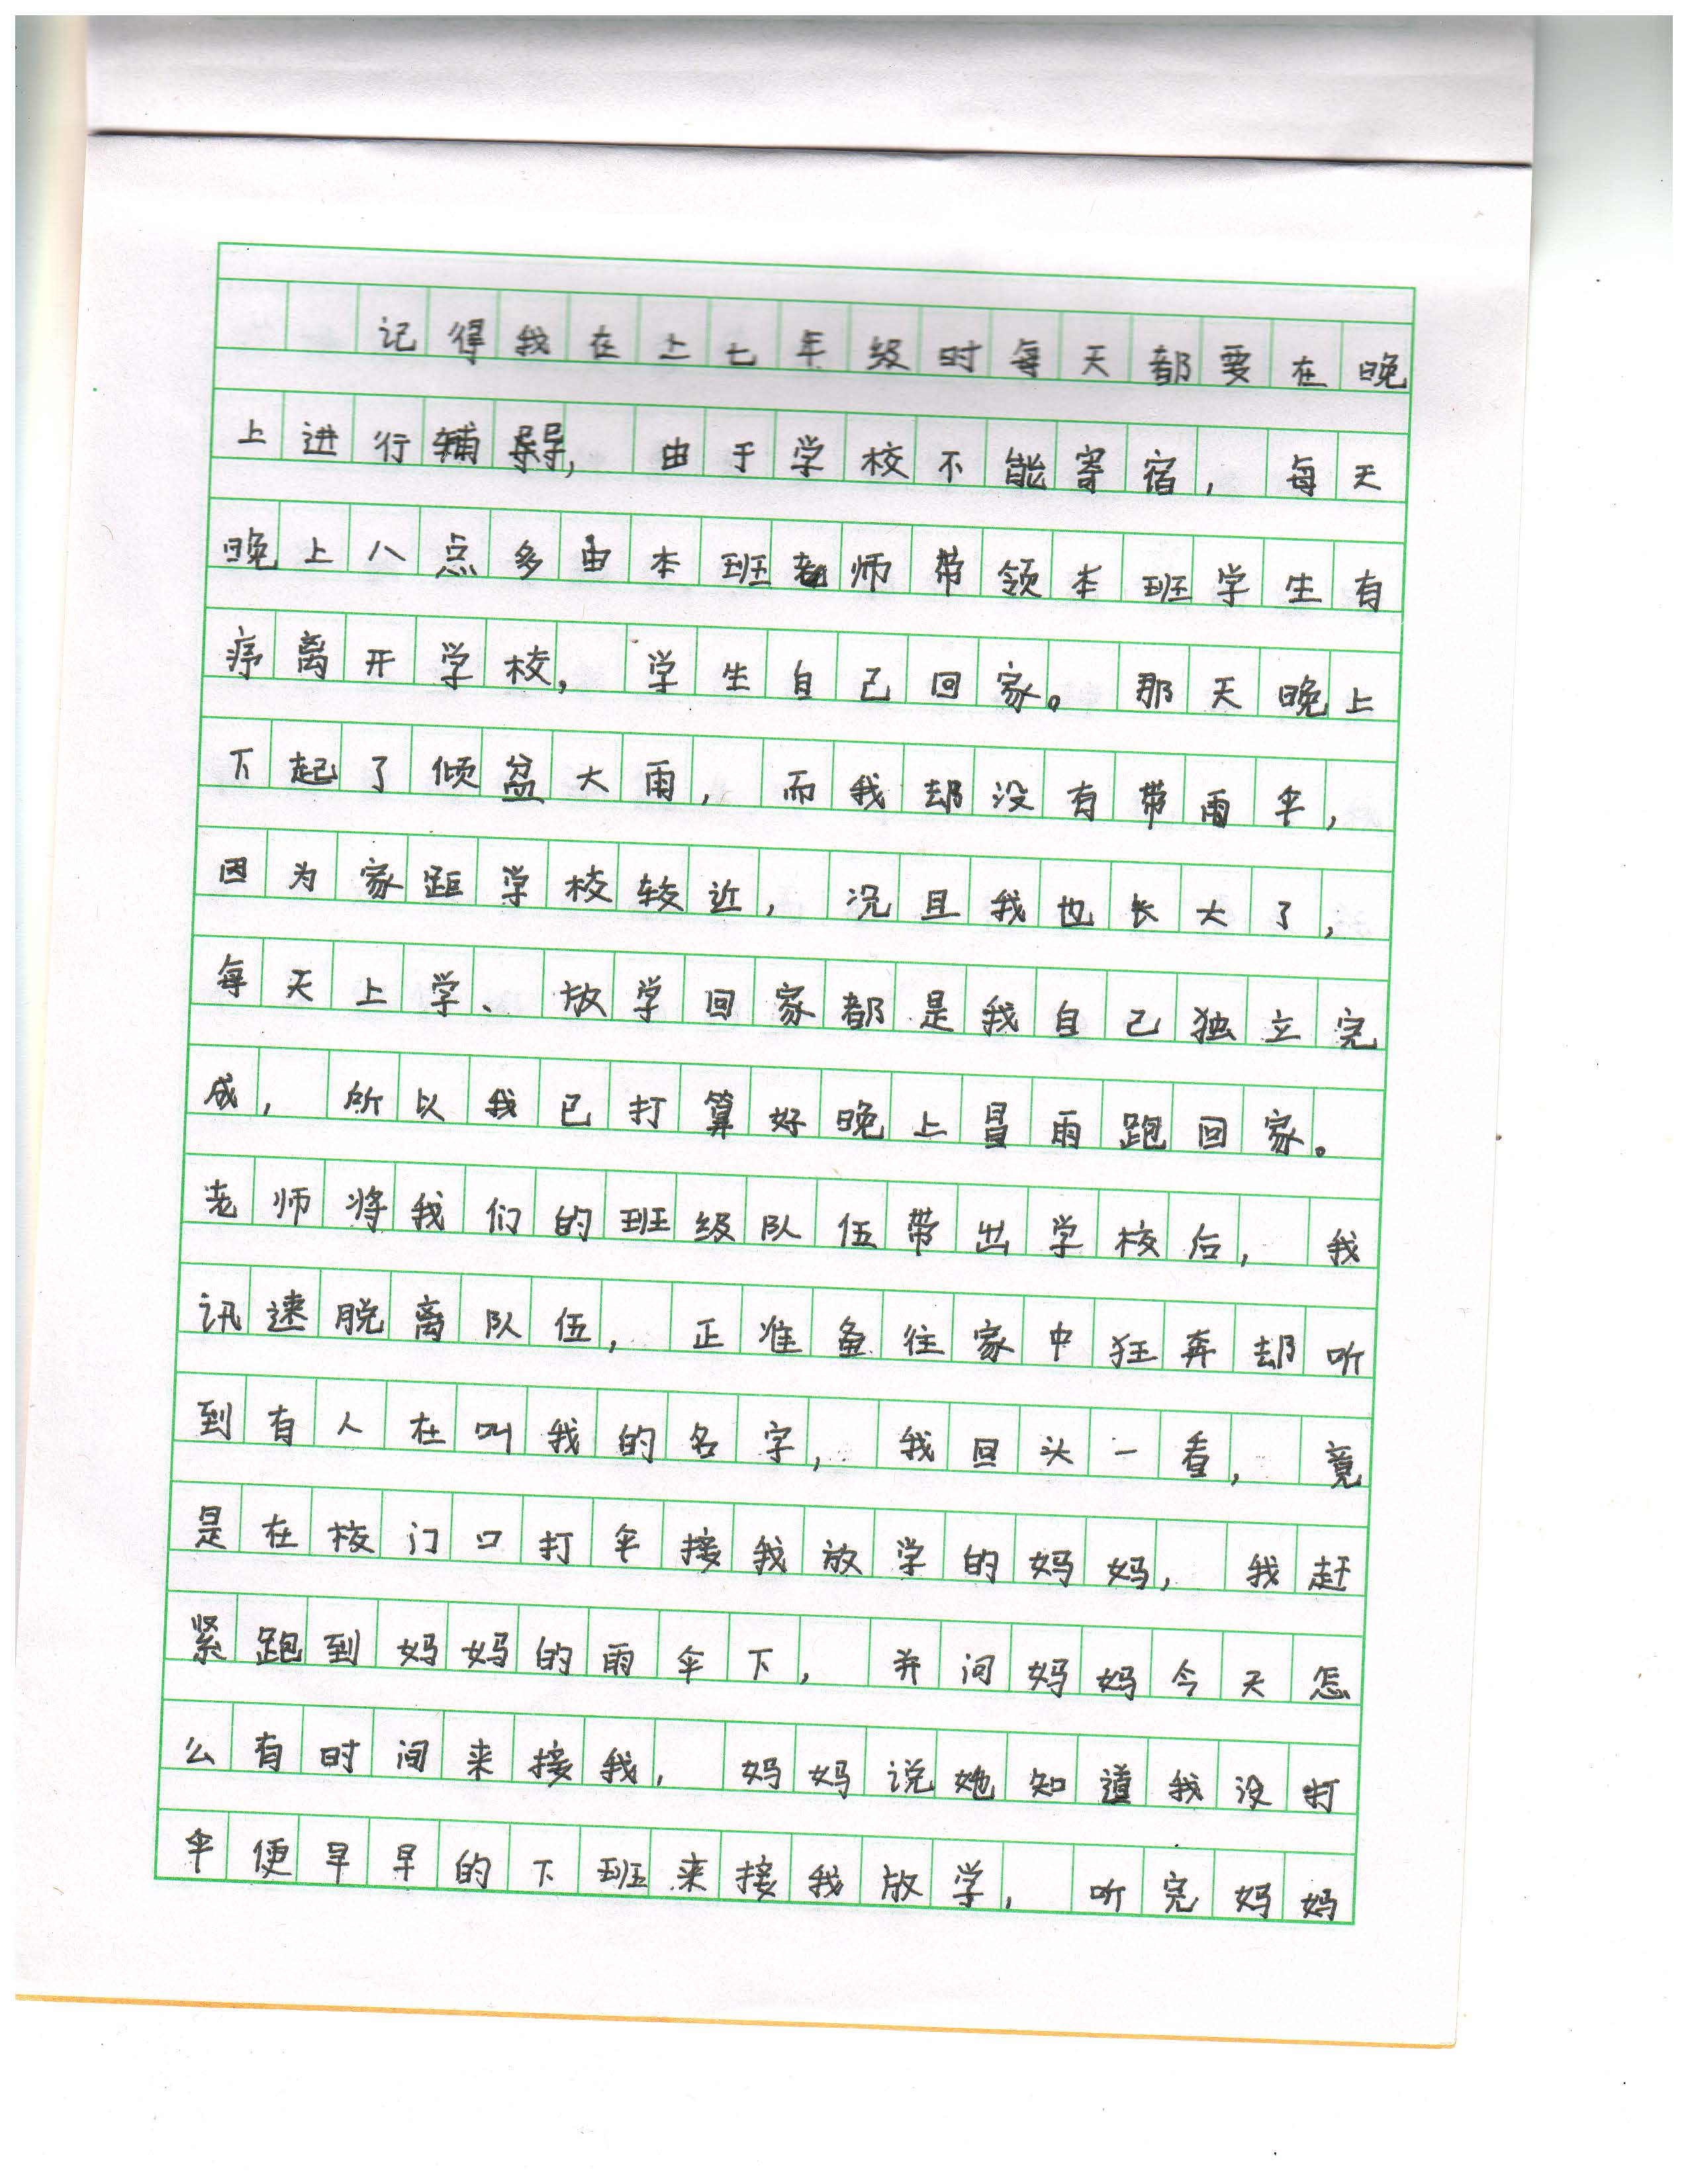 记得我在上七年级时每天都要在晚
上进行辅导，由于学校不能寄宿，每天
晚上八点多由本班老师带领本班学生有
序离开学校，学生自己回家。那天晚上
下起了倾盆大雨，而我却没有带雨伞，
因为家距学校较近，况且我也长大了，
每天上学、放学回家都是我自己独立完
成，所以我已打算好晚上冒雨跑回家。
老师将我们的班级队伍带出学校后，我
讯速脱离队伍，正准备往家中狂奔却听
到有人在叫我的名字，我回头一看，竟
是在校门口打伞接我放学的妈妈，我赶
紧跑到妈妈的雨伞下，并问妈妈今天怎
么有时间来接我，妈妈说她知道我没打
伞便早早的下班来接我放学，听完妈妈